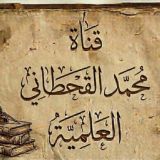 قناة
محمد القحطاني
العالمية